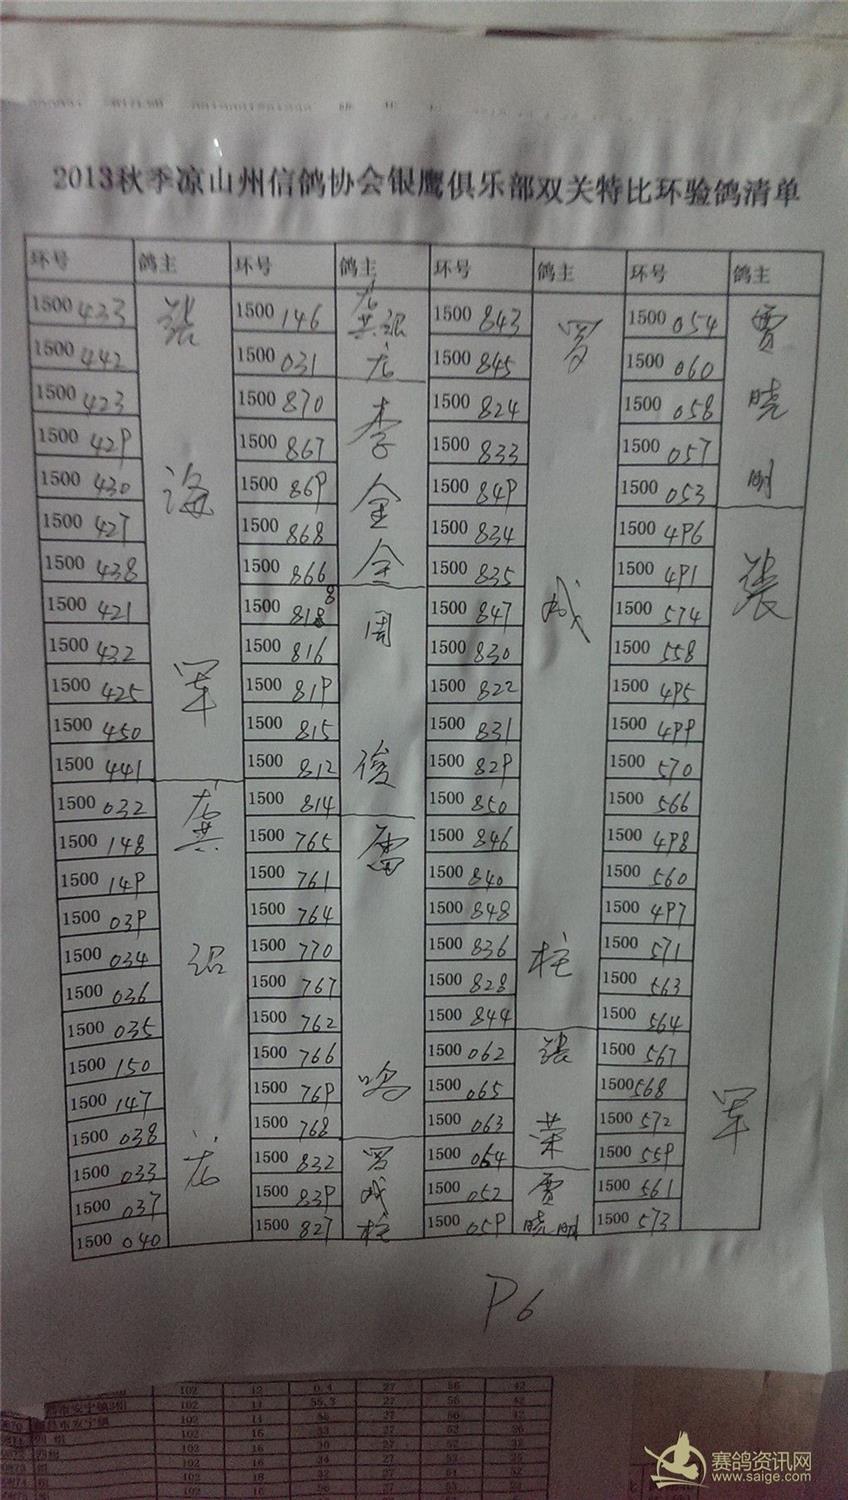 2013秋季凉山州信鸽协会银鹰俱乐部双关特比环验鸽清单
环号 鸽主 环号 鸽主 环号 鸽主 环号 鸽主
1500 433 张 1500 146 龙 龚绍 1500 843 罗 1500 054 贾
1500 442 1500 031 龙 1500 845 1500 060
1500 423 1500 870 李 1500 824 1500 058 晓
1500 429 1500 867 1500 833 1500 057
1500 430 海 1500 869 金 1500 849 1500 053 明
1500 427 1500 868 1500 834 1500 496
1500 438 1500 866 全 1500 835 1500 491 张
1500 421 1500 818 8 周 1500 847 成 1500 574
1500 432 1500 816 1500 830 1500 558
1500 425 军 1500 819 1500 822 1500 495
1500 450 1500 815 1500 831 1500 499
1500 441 1500 812 俊 1500 829 1500 570
1500 032 龚 1500 814 1500 850 1500 566
1500 148 1500 765 雷 1500 846 1500 498
1500 149 1500 761 1500 840 1500 560
1500 039 1500 764 1500 848 1500 497
1500 034 绍 1500 770 1500 836 柱 1500 571
1500 036 1500 767 1500 828 1500 563
1500 035 1500 762 1500 844 1500 564
1500 150 1500 766 1500 062 张 1500 567
1500 147 1500 769 鸣 1500 065 1500 568
1500 038 1500 768 1500 063 荣 1500 572 军
1500 033 龙 1500 832 罗 1500 064 1500 559
1500 037 1500 839 成 1500 052 贾 1500 561
1500 040 1500 827 柱 1500 059 晓明 1500 573
P6
赛鸽资讯网
www.saige.com